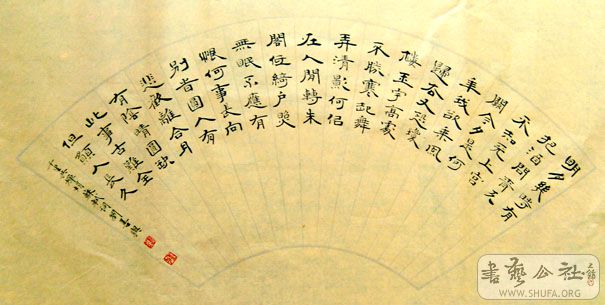 明月幾時有
把酒問青天
不知天上宮
闕今夕是何
年我欲乘風
歸去又恐瓊
樓玉宇高處
不勝寒起舞
弄清影何似
在人間轉朱
閣低綺戶照
無眠不應有
恨何事長向
別時圓人有
悲歡離合月
有陰晴圓缺
此事古難全
但願人長久
蘇軾詞劉
書藝公社
WWW.SHUFA.ORG